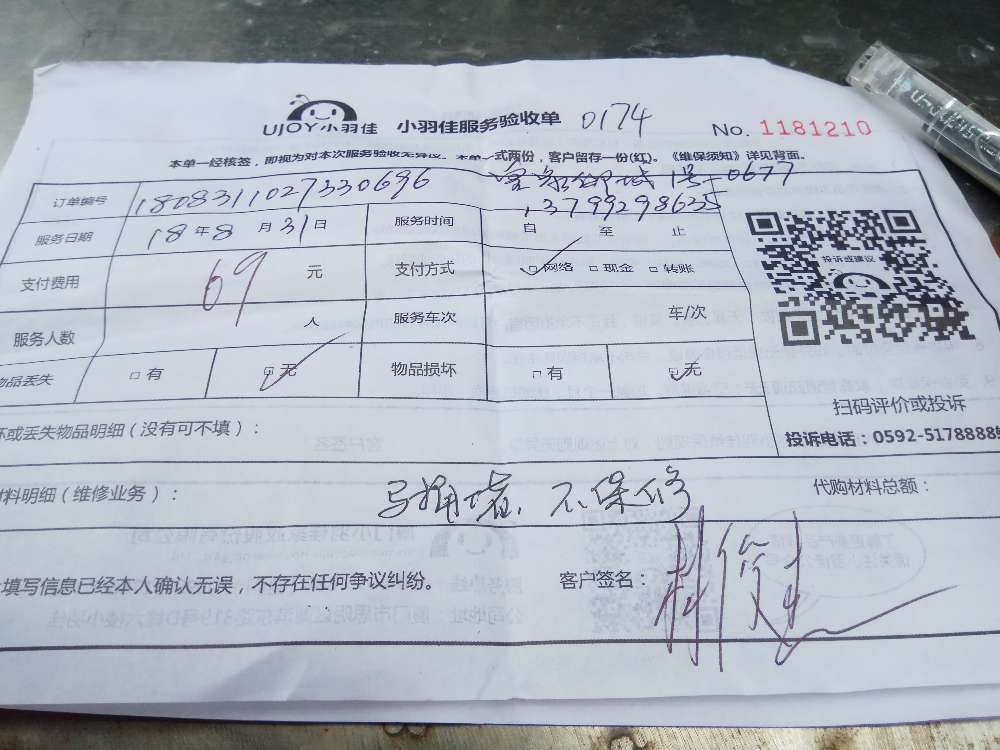 UJOY小羽佳 小羽佳服务验收单 0174 No. 1181210
本单一经核签，即视为对本次服务验收无异议。本单一式两份，客户留存一份(红)。《维保须知》详见背面。
订单编号 1808311027330696 1号 0677
13799298635
服务日期 18年8月31日 服务时间 自 至 止
支付费用 69 元 支付方式 网络 现金 转账
投诉或建议
服务人数 人 服务车次 车/次
物品丢失 有 无 物品损坏 有 无
扫码评价或投诉
坏或丢失物品明细（没有可不填）：
投诉电话：0592-5178888
材料明细（维修业务）： 马桶堵. 不保修 代购材料总额：
填写信息已经本人确认无误，不存在任何争议纠纷。 客户签名：